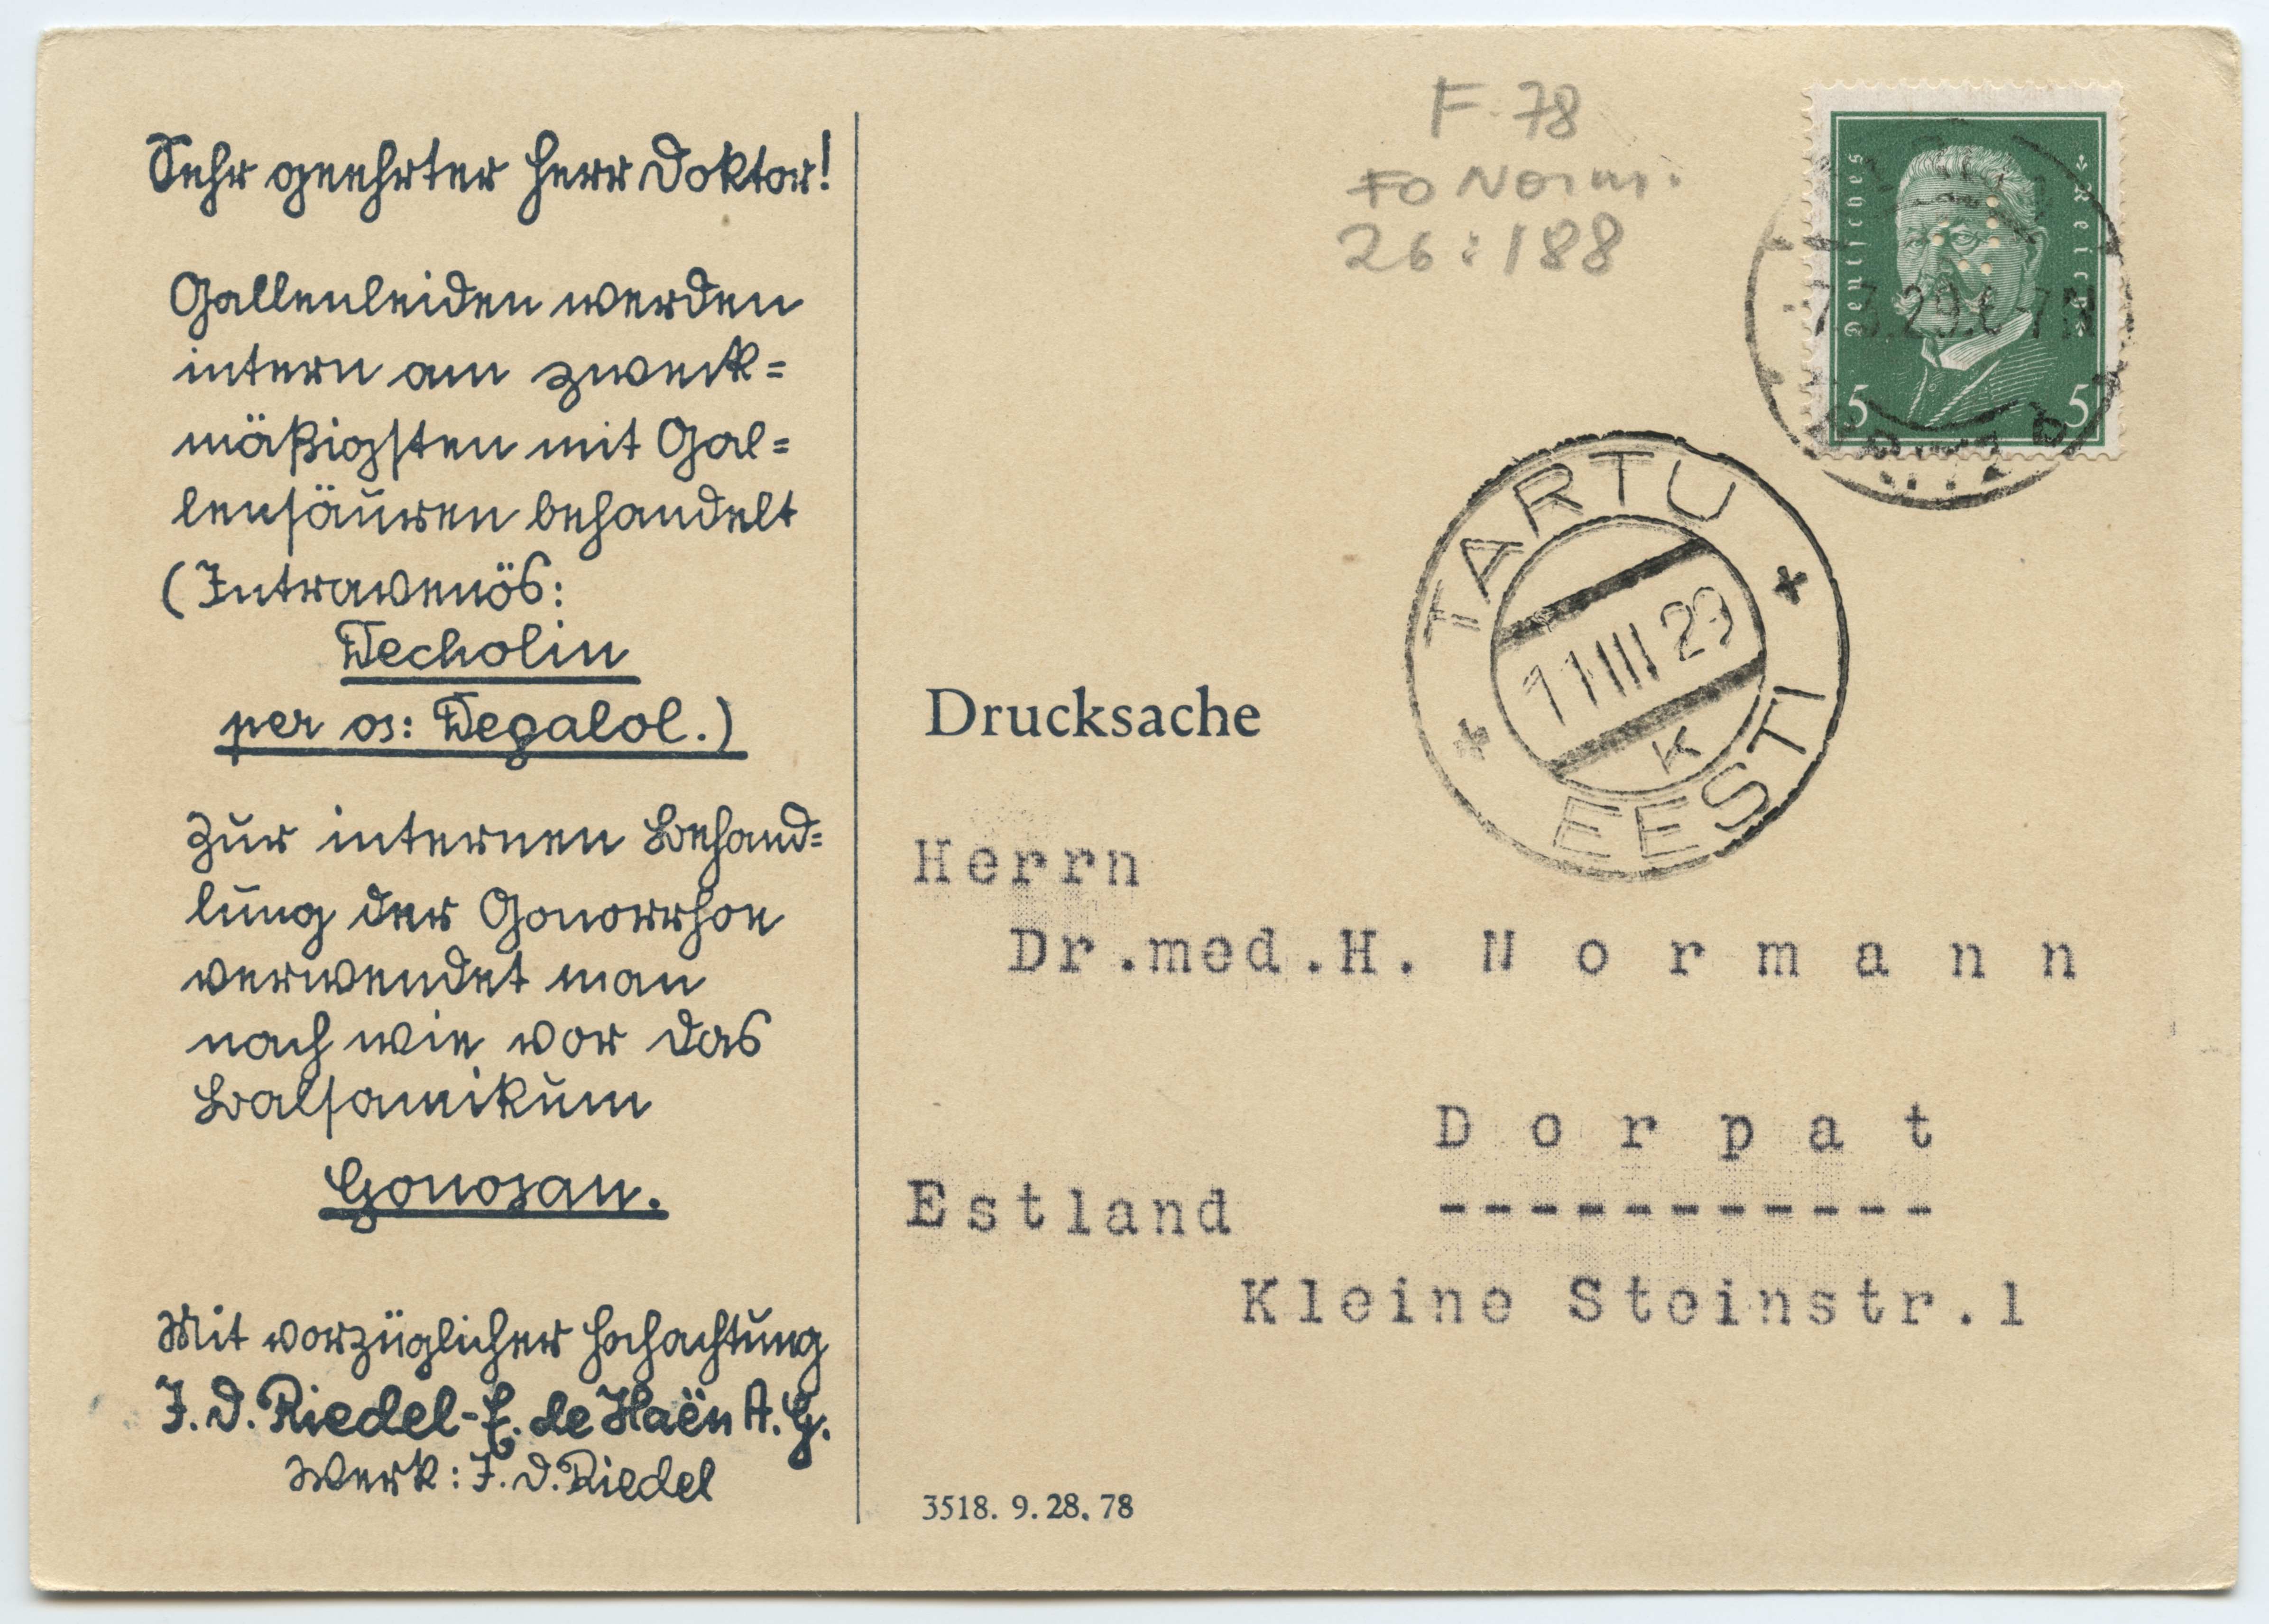 Sehr geehrter Herr Doktor!
Gallenleiden werden
intern am zweck=
mäßigsten mit Gal=
lensäuren behandelt
(Intravenös:
Decholin
per os: Degalol.)
Zur internen Behand=
lung der Gonorrhoe
verwendet man
nach wie vor das
Balsamikum
Gonosan.
Mit vorzüglicher Hochachtung
J. D. Riedel-E. de Haën A. G.
Werk: J. D. Riedel
F. 78
FO Norm.
26:188
Deutsches Reich
5 5
7.3.29.6-7N
TARTU
11 III 29
K
EESTI
Drucksache
Herrn
Dr.med.H. Normann
Dorpat
Estland
Kleine Steinstr.1
3518. 9. 28. 78